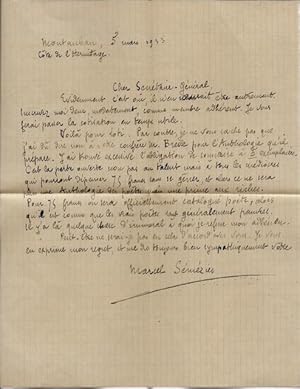 Montauban, 5 mars 1933
Côte de l'Hermitage.
Cher Secrétaire-Général
Evidemment c'est où il n'en saurait être autrement.
Inscrivez moi donc, notamment, comme membre adhérent. Je vous
ferai passer la cotisation en temps utile.
Voilà pour
Par contre, je ne vous cache pas que
j'ai dit non à votre confrère
pour l'Anthologie qu'il
prépare. J'ai trouvé excessive l'obligation de souscrire à
exemplaires
C'est la porte ouverte non pas au talent mais à tous les médiocres
qui pourront dépenser 75 francs
et alors ce ne sera
Anthologie de Poètes
une prime aux riches.
Pour 75 francs on sera officiellement catalogué poète, alors
qu'il est connu que les vrais poètes sont généralement pauvres.
Il y a là quelque chose d'immoral à quoi je refuse mon adhésion.
Peut-être ne serai-je pas en cela d'accord avec vous. Je vous
en exprime mon regret, et me dis toujours bien sympathiquement vôtre
Marcel Sémézies